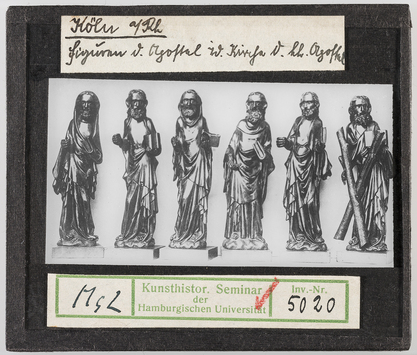 Köln a/Rh
Figuren d. Apostel i.d. Kirche d. hl. Apostel
MgL
Kunsthistor. Seminar
der
Hamburgischen Universität
Inv.-Nr.
5020